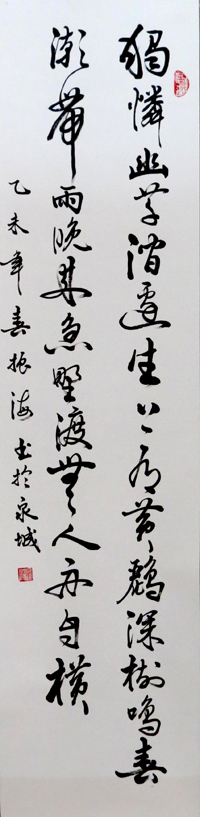 獨憐幽草澗邊生上有黃鸝深樹鳴春
潮帶雨晚來急野渡無人舟自橫
乙未年春振海书於泉城